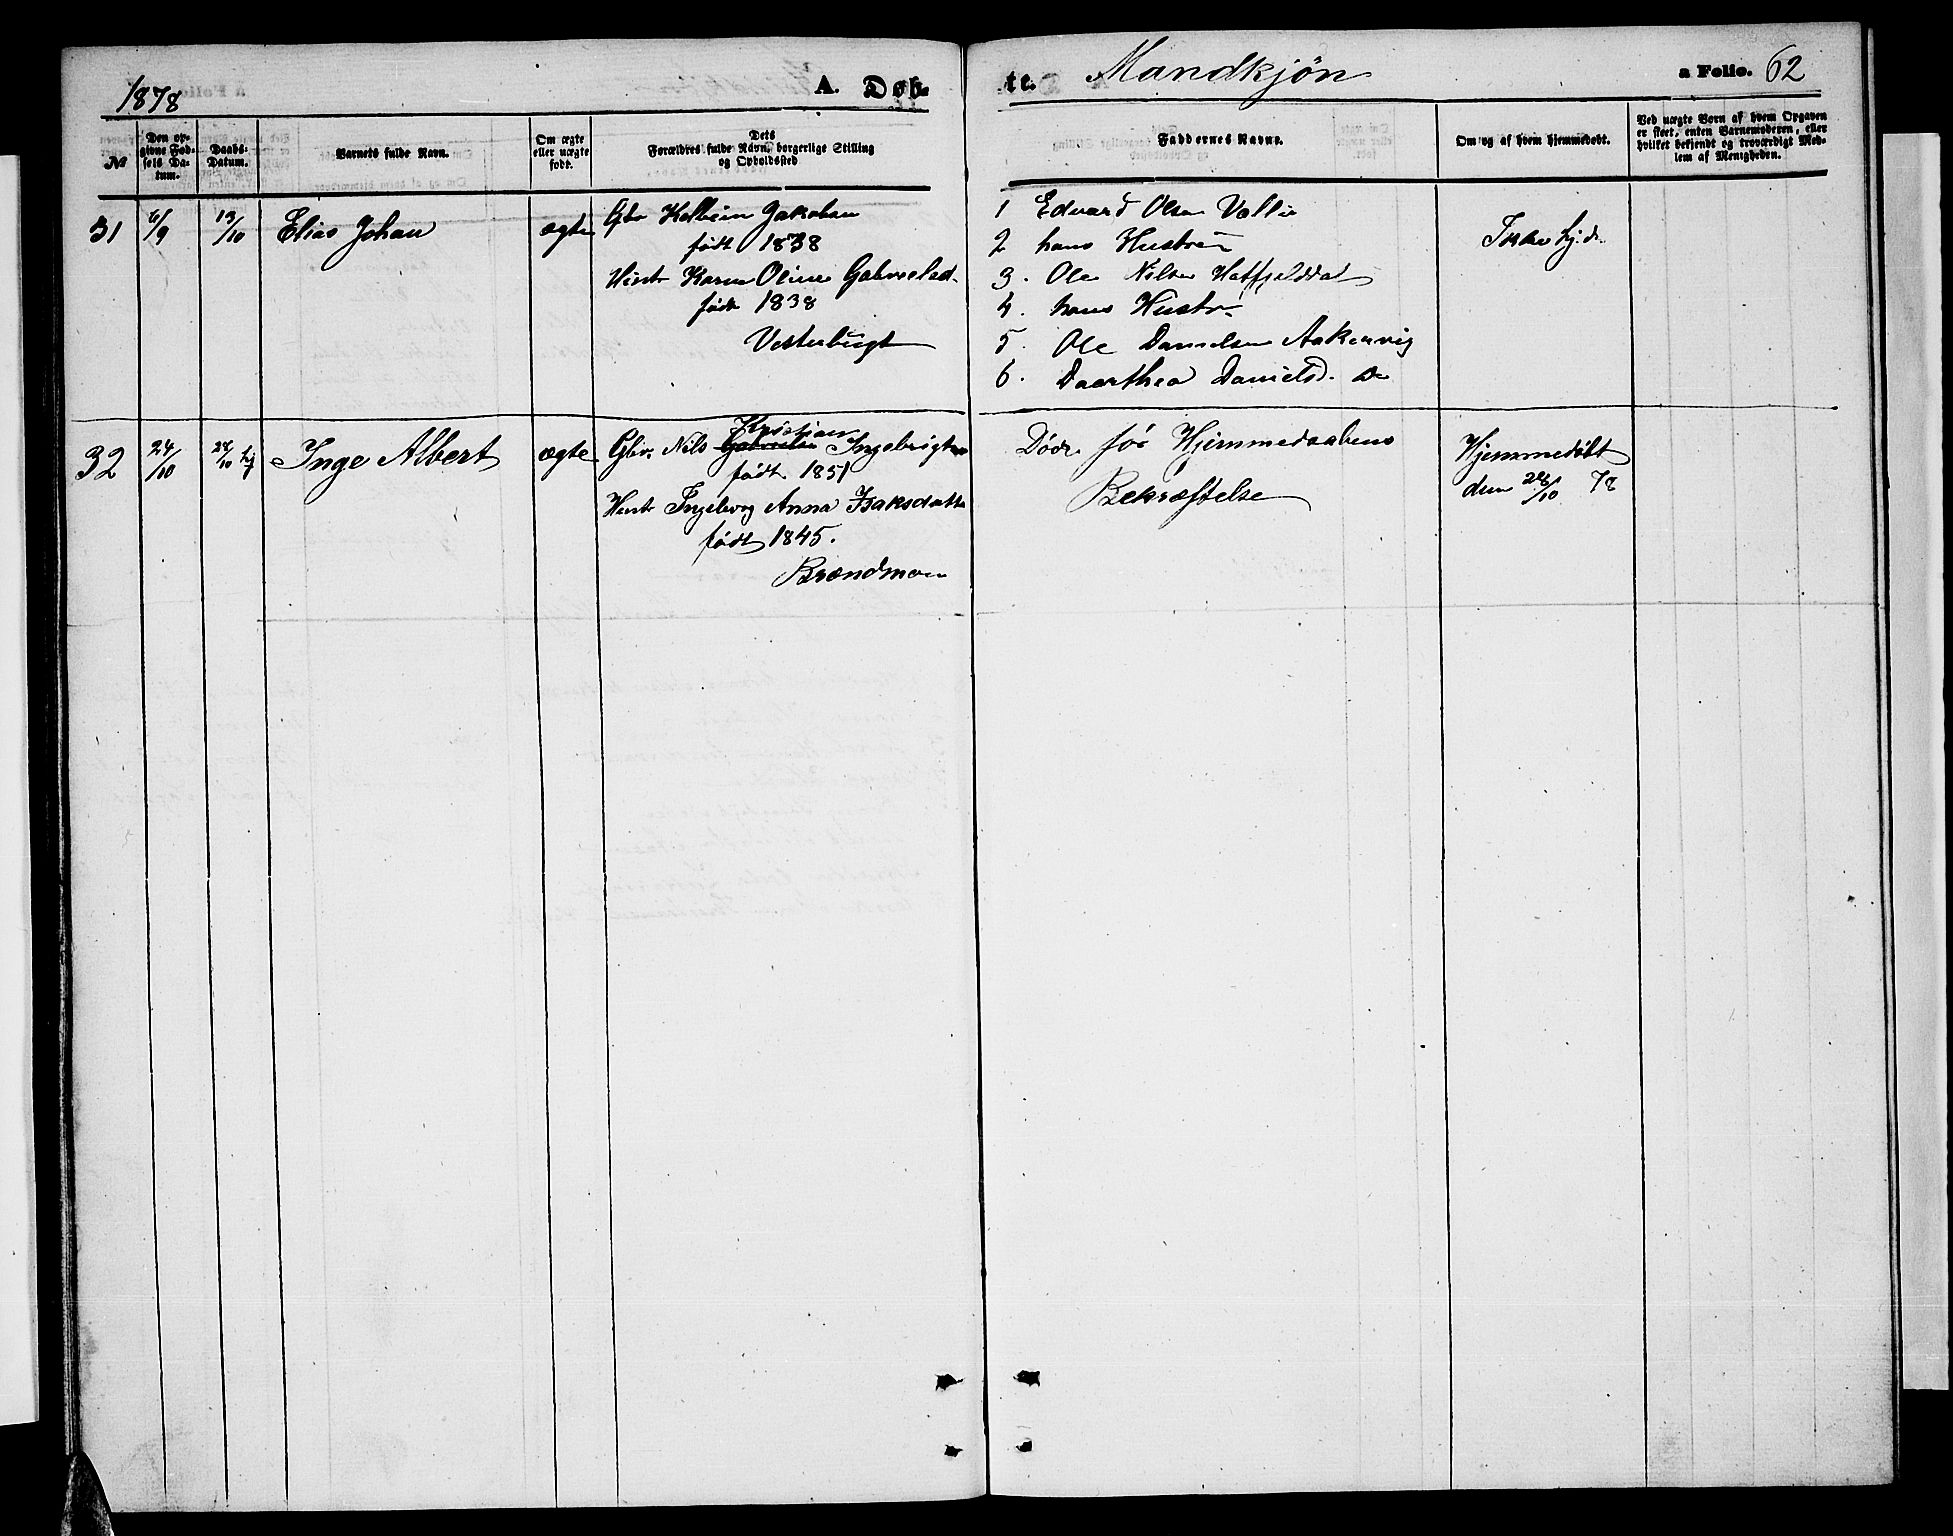 1878
A. Døb-
te. Mandkjøn
a Folio. 62
№
Den op-
givne Fød-
sels Da-
tum.
Daabs-
Datum.
Barnets fulde Navn.
Om ægte
eller uægte
født.
Dets
Forældres fulde Navn, borgerlige Stilling
og Opholdssted
Faddernes Navne.
Om og af hvem hjemmedøbt.
Ved uægte Børn af hvem Opgaven
er skeet, enten Barnemoderen, eller
hvilket bekjendt og troværdigt Med-
lem af Menigheden.
31 6/9 13/10 Elias Johan ægte Gbr Jakobsen
født 1838
Hustr Karen Oline Gabrielsd.
født 1838
Vesterbugt
1 Edvard Olsen Vollie
2 hans Hustru
3. Ole Nilsen Hatfjelddal
4. hans Hustr
5. Ole Danielsen Aakervig
6. Daarthea Danielsd. Do
Ikke hj.d.
32 24/10 28/10 hj Inge Albert ægte Gbr. Nils Kristian Gabrielsen Ingebrigtsen
født 1851
Hustr Ingeborg Anna Isaksdatter
født 1845.
Brændmoen
Døde før Hjemmedaabens
Bekræftelse
Hjemmedøbt
den 28/10 78